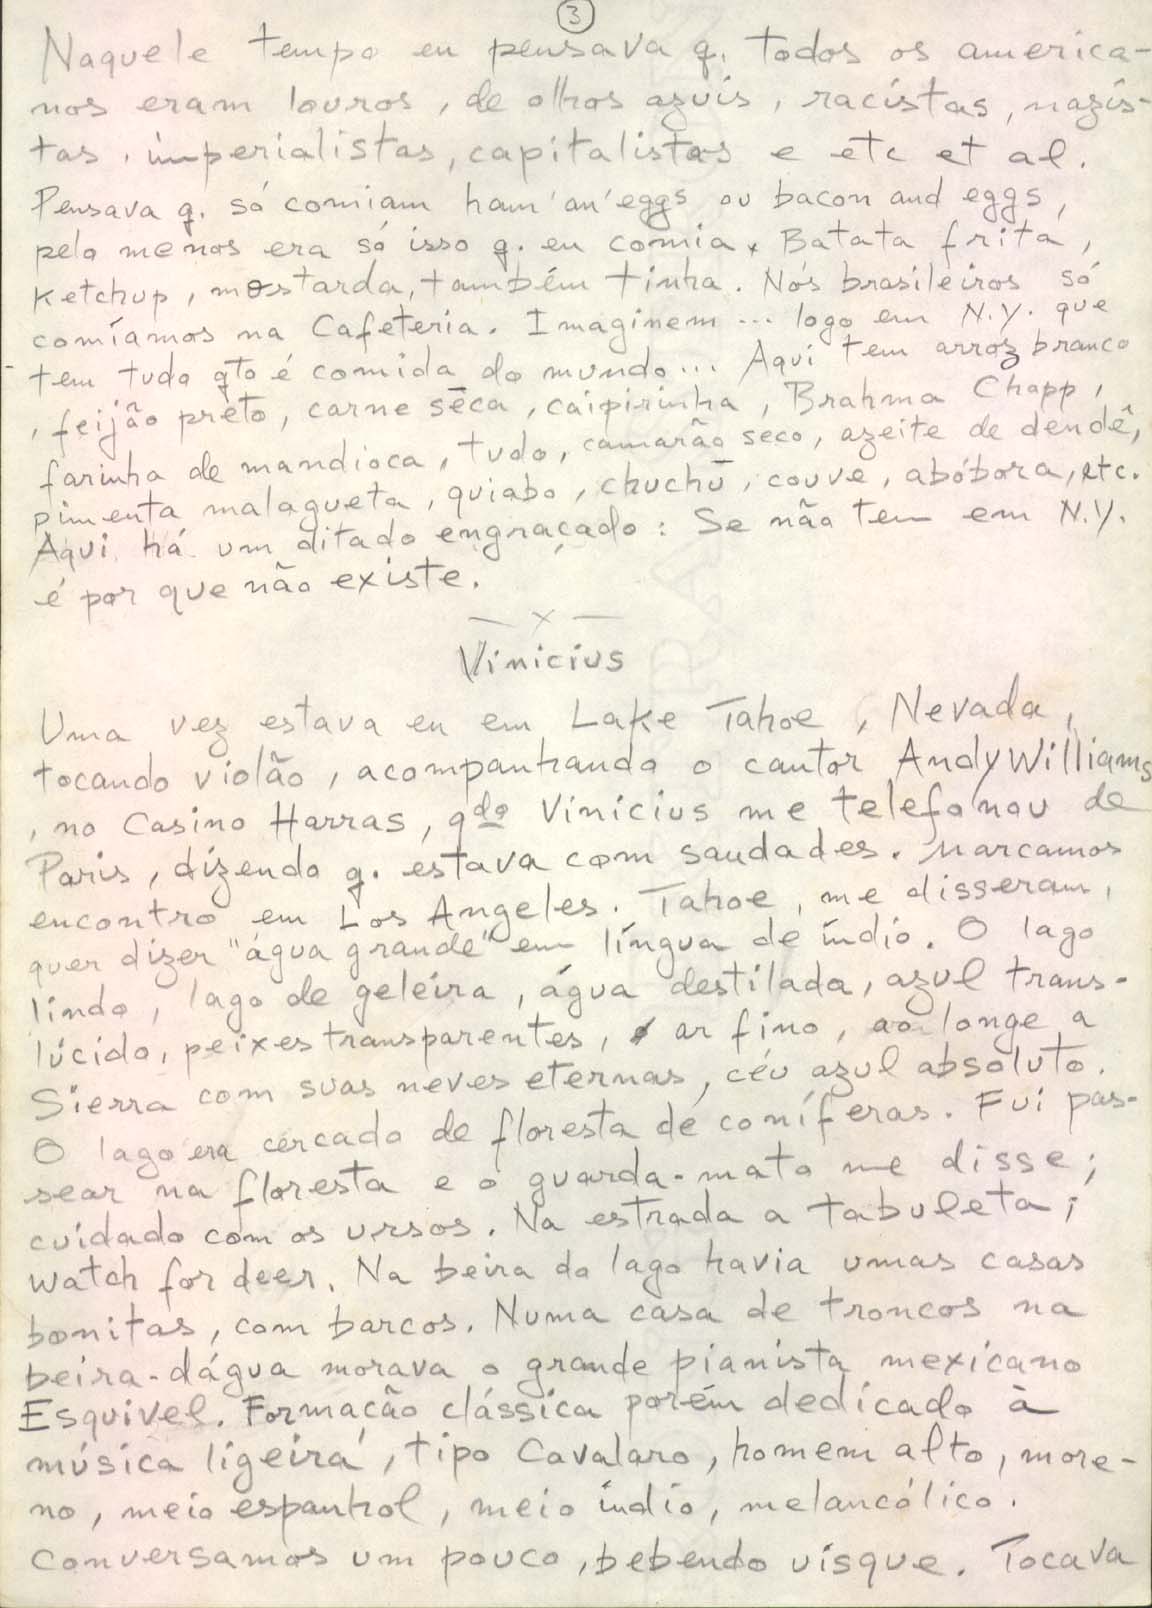 3
Naquele tempo eu pensava q. todos os america-
nos eram louros, de olhos azuis, racistas, nazis-
tas, imperialistas, capitalistas e etc et al.
Pensava q. só comiam ham'an'eggs ou bacon and eggs,
pelo menos era só isso q. eu comia. Batata frita,
Ketchup, mostarda, também tinha. Nós brasileiros só
comíamos na Cafeteria. Imaginem... logo em N.Y. que
tem tudo qto é comida do mundo... Aqui tem arroz branco
, feijão preto, carne sêca, caipirinha, Brahma Chopp,
farinha de mandioca, tudo, camarão seco, azeite de dendê,
pimenta malagueta, quiabo, chuchú, couve, abóbora, etc.
Aqui há um ditado engraçado: Se não tem em N.Y.
é por que não existe.
— x —
Vinicius
Uma vez estava eu em Lake Tahoe, Nevada,
tocando violão, acompanhando o cantor Andy Williams
, no Casino Harras, qdo Vinicius me telefonou de
Paris, dizendo q. estava com saudades. Marcamos
encontro em Los Angeles. Tahoe, me disseram,
quer dizer "água grande" em língua de índio. O lago
lindo, lago de geleira, água destilada, azul trans-
lúcido, peixes transparentes, ar fino, ao longe a
Sierra com suas neves eternas, céu azul absoluto.
O lago era cercado de floresta de coníferas. Fui pas-
sear na floresta e o guarda-mato me disse;
cuidado com os ursos. Na estrada a tabuleta;
watch for deer. Na beira do lago havia umas casas
bonitas, com barcos. Numa casa de troncos na
beira-dágua morava o grande pianista mexicano
Esquivel. Formação clássica porém dedicado à
música ligeira, tipo Cavalaro, homem alto, more-
no, meio espanhol, meio índio, melancólico.
Conversamos um pouco, bebendo uísque. Tocava